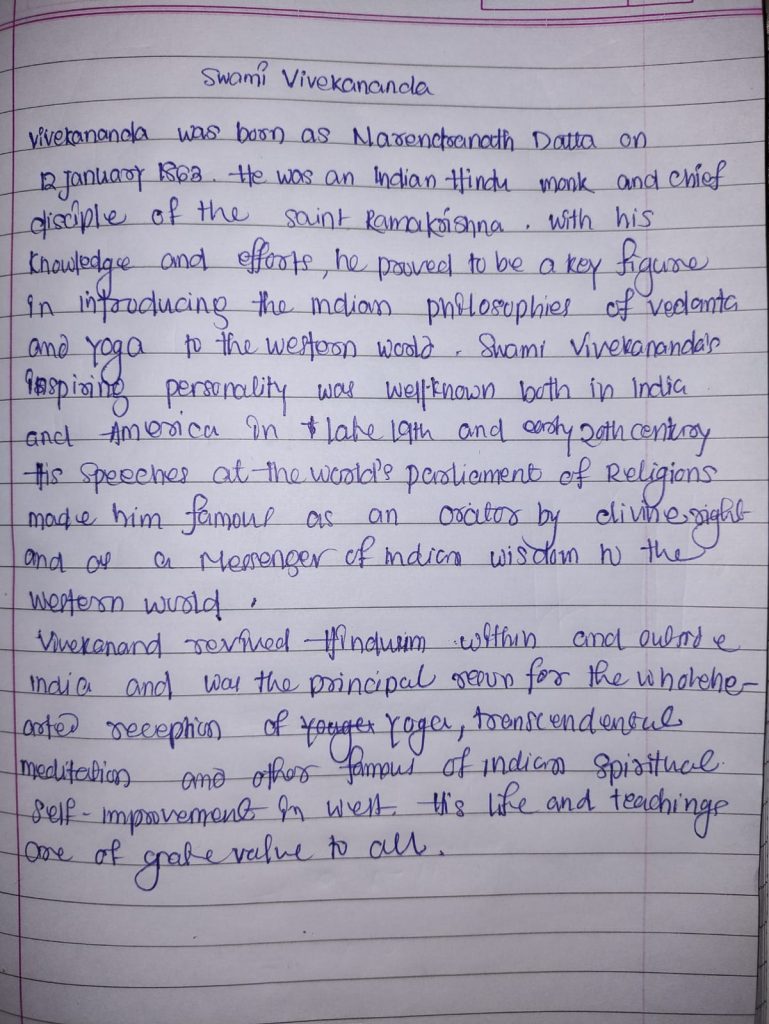 Swami Vivekananda
Vivekananda was born as Narendranath Datta on
12 January 1863. He was an Indian Hindu monk and chief
disciple of the saint Ramakrishna. with his
knowledge and efforts, he proved to be a key figure
in introducing the Indian philosophies of vedanta
and Yoga to the western world. Swami Vivekananda's
inspiring personality was well-known both in India
and America in late 19th and early 20th century
His Speeches at the world's parliament of Religions
made him famous as an orator by divine right
and as a Messenger of indian wisdom to the
western world.
Vivekanand revived Hinduism within and outside
India and was the principal reason for the wholehe-
arted reception of Yoga, transcendental
meditation and other famous of indian spiritual
self-improvement in west. His life and teachings
are of grate value to all.